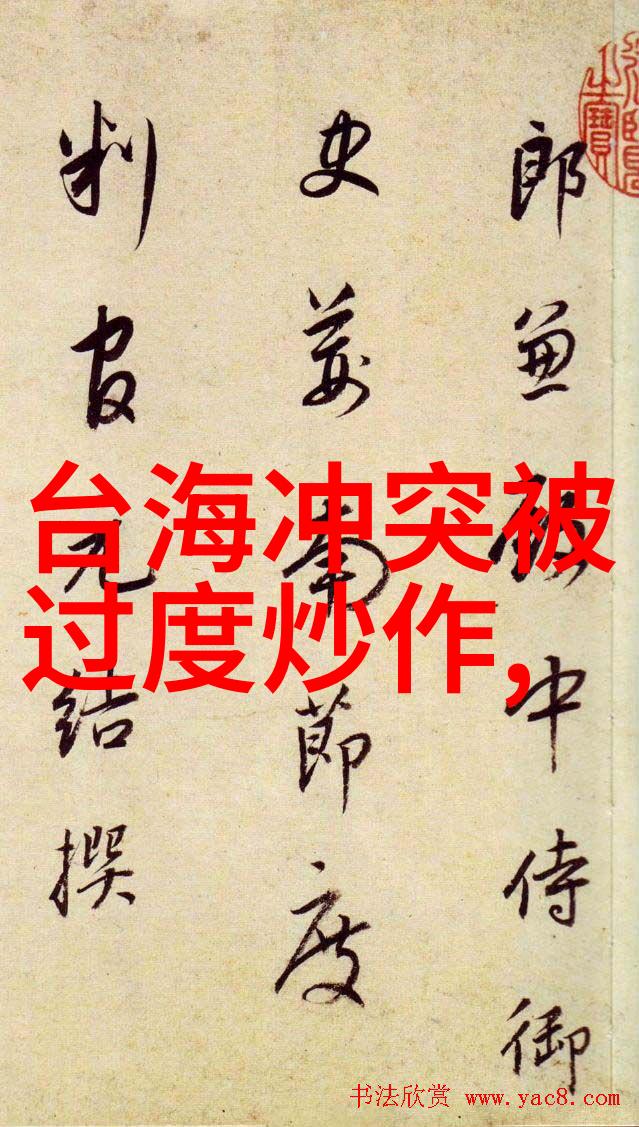 郎兼殿中侍御
史荊南節度
判官元結撰
台海冲突被
过度炒作,
书法欣赏 www.yac8.com